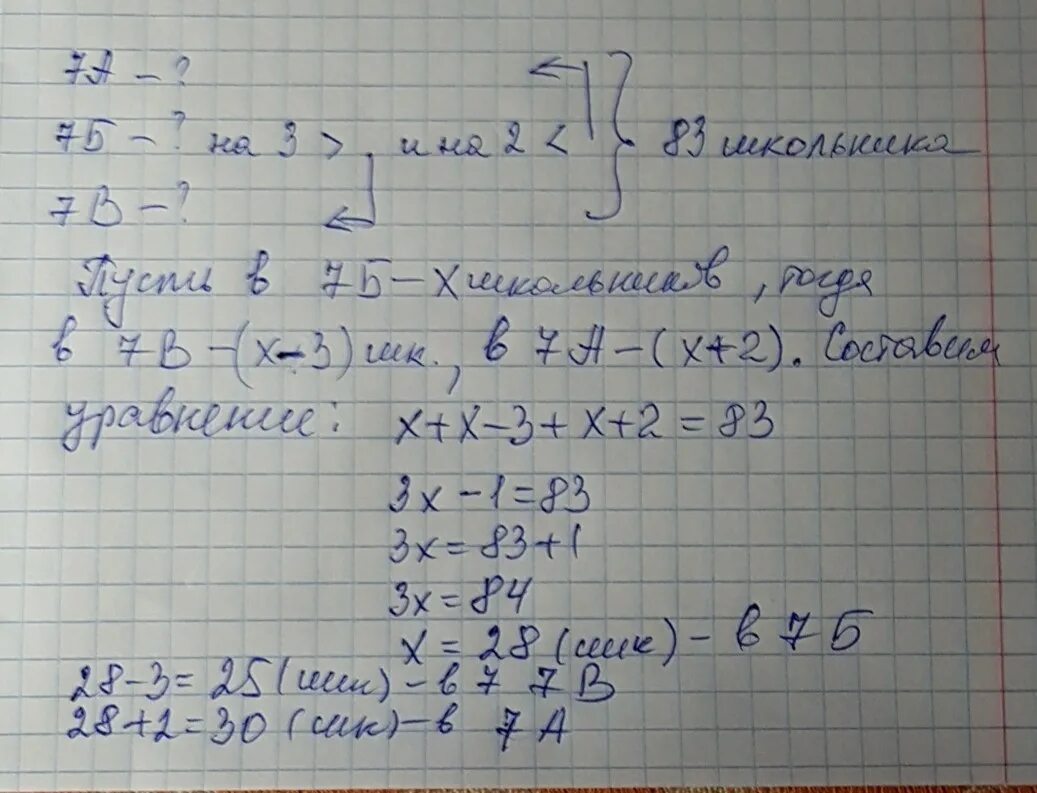 7А – ?
7Б – ? на 3 > и на 2 < } 83 школьника
7В – ?
Пусть в 7Б – x школьников, тогда
в 7В – (x – 3) шк., в 7А – (x + 2). Составим
уравнение: x + x – 3 + x + 2 = 83
3x – 1 = 83
3x = 83 + 1
3x = 84
x = 28 (шк) – в 7Б
28 – 3 = 25 (шк) – в 7 7В
28 + 2 = 30 (шк) – в 7А